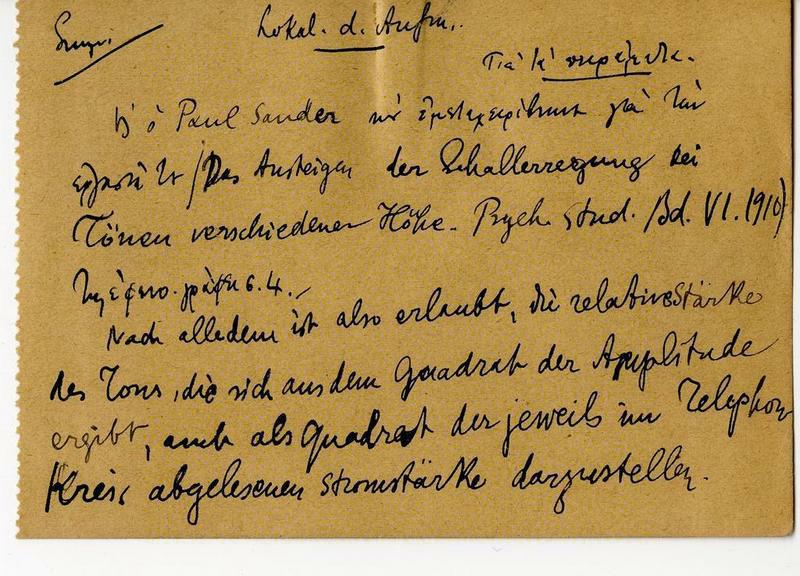 Lokal. d. Aufm.
Γιὰ τὰ πειράματα.
ὁ Paul Sander γιὰ τὴν
(Das Ansteigen der Schallerregung bei
Tönen verschiedener Höhe. Psych. Stud. Bd. VI. 1910)
γράφει σ. 4.
Nach alledem ist also erlaubt, die relative Stärke
des Tons, die sich aus dem Quadrat der Amplitude
ergibt, auch als Quadrat der jeweils im Telephon
kreis abgelesenen Stromstärke darzustellen.